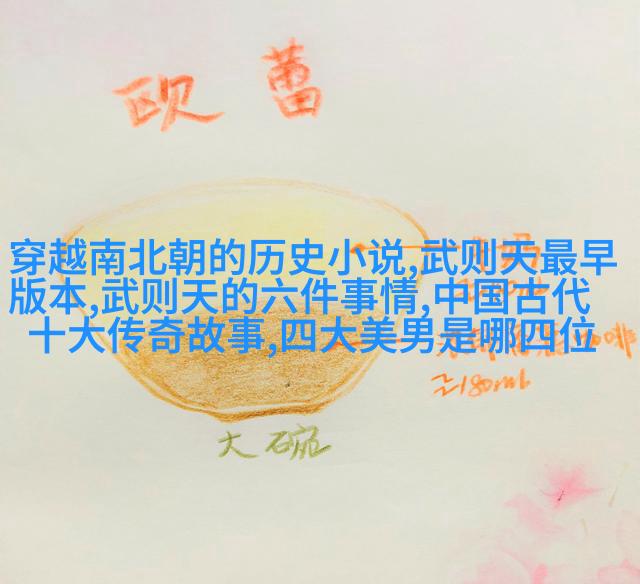 欧蕾
穿越南北朝的历史小说,武则天最早
版本,武则天的六件事情,中国古代
十大传奇故事,四大美男是哪四位
180ml
大碗